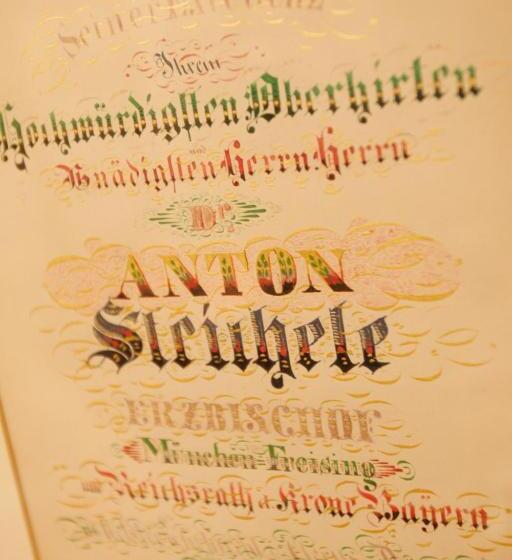 Seiner Excellenz
Ihrem
Hochwürdigsten Oberhirten
und
Gnädigsten Herrn Herrn
Dr.
ANTON
Steichele
ERZBISCHOF
München-Freising
Reichsrath d. Krone Bayern